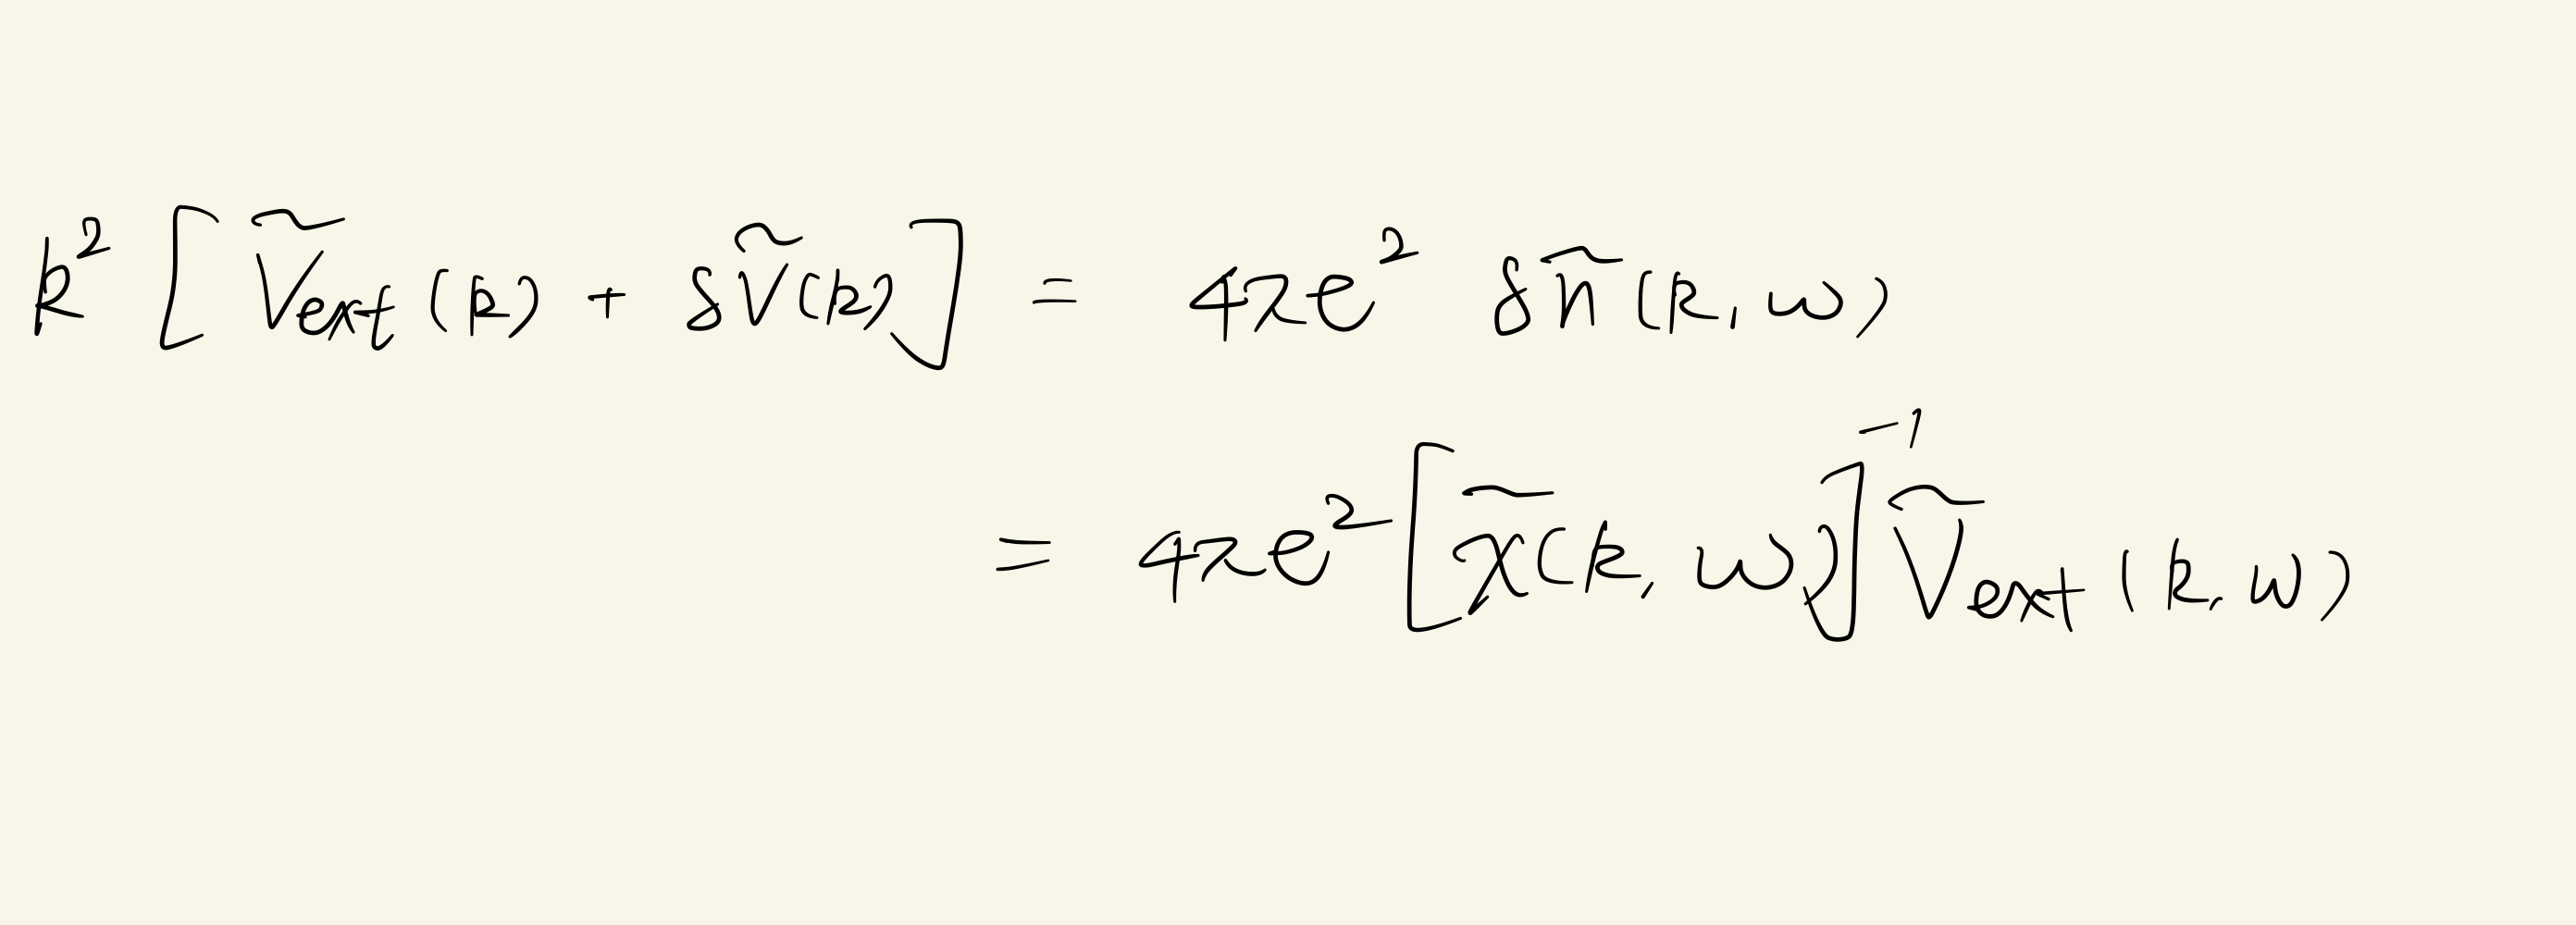 k² [ Ṽ_ext (k) + δṼ(k) ] = 4πe² δñ (k, ω)
= 4πe² [ χ̃(k, ω) ]⁻¹ Ṽ_ext (k, ω)